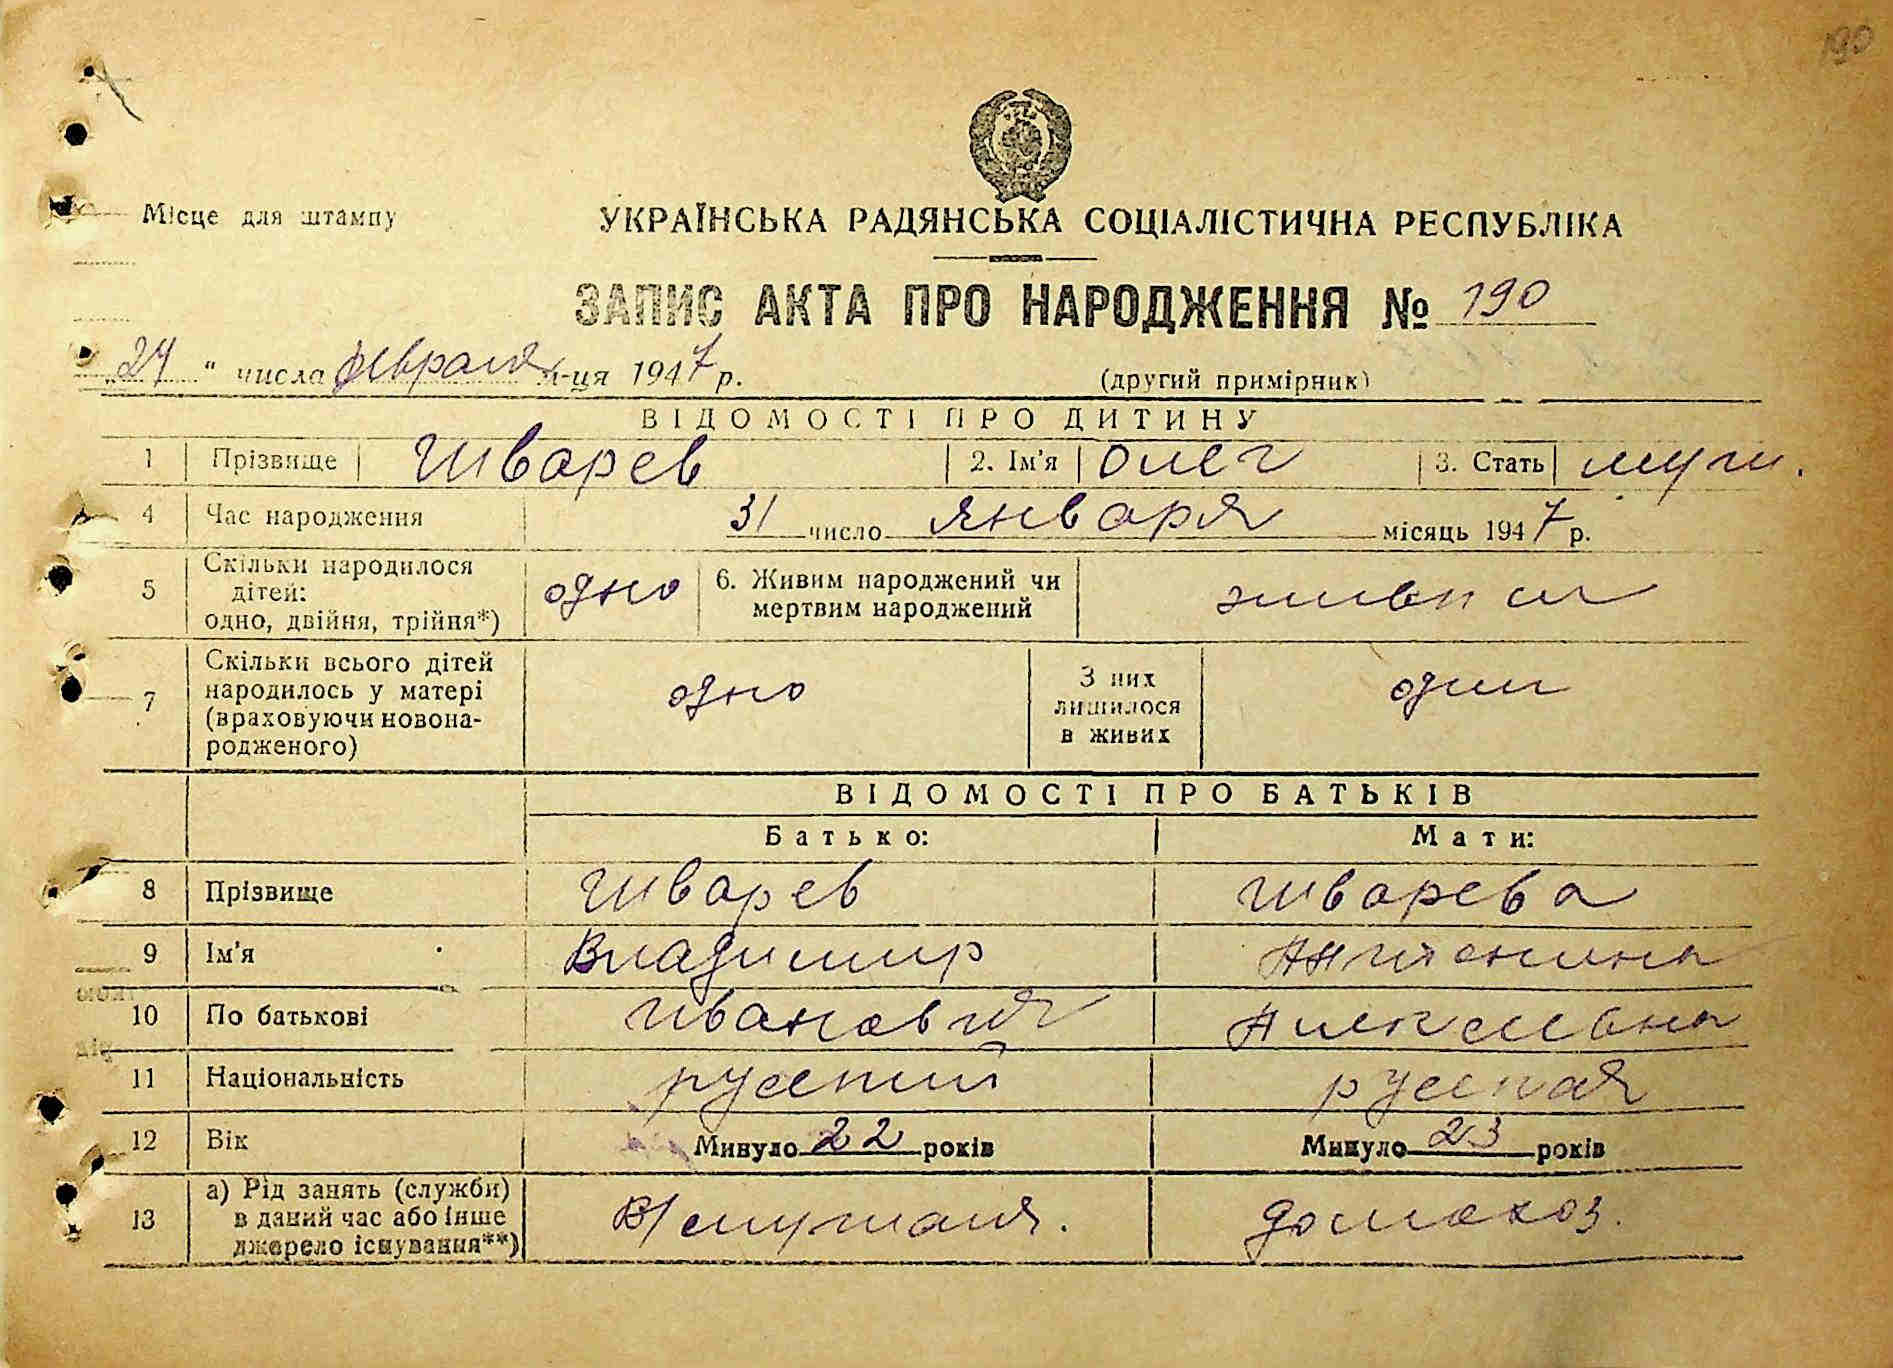 190
Місце для штампу
УКРАЇНСЬКА РАДЯНСЬКА СОЦІАЛІСТИЧНА РЕСПУБЛІКА
ЗАПИС АКТА ПРО НАРОДЖЕННЯ № 190
„24“ числа февраля м-ця 1947 р.
(другий примірник)
ВІДОМОСТІ ПРО ДИТИНУ
1 Прізвище Шварев 2. Ім'я Олег 3. Стать муж.
4 Час народження 31 число января місяць 1947 р.
5 Скільки народилося дітей: одно, двійня, трійня*) одно 6. Живим народжений чи мертвим народжений живым
7 Скільки всього дітей народилось у матері (враховуючи новонародженого) одно З них лишилося в живих один
ВІДОМОСТІ ПРО БАТЬКІВ
Батько: Мати:
8 Прізвище Шварев Шварева
9 Ім'я Владимир Антонина
10 По батькові Иванович Алексеевна
11 Національність русский русская
12 Вік Минуло 22 років Минуло 23 років
13 а) Рід занять (служби) в даний час або інше джерело існування**) В/служащ. домохоз.